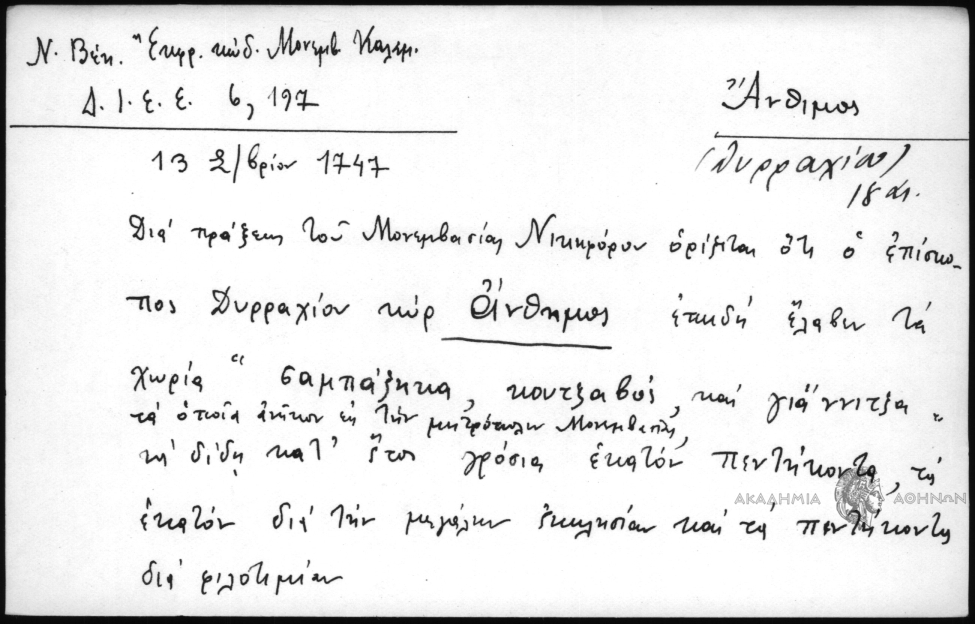 Ν. Βέη. "Εκφρ. κώδ. Μονεμβ Καλαμ.
Δ. Ι. Ε. Ε. 6, 197
Ἄνθιμος
(Δυρραχίου)
18 αι.
13 9/βρίου 1747
Διά πράξεως τοῦ Μονεμβασίας Νικηφόρου ὁρίζεται ὅτι ὁ ἐπίσκο-
πος Δυρραχίου κύρ Ἄνθημος ἐπειδή ἔλαβεν τά
χωρία "σαμπάζηκα, κουτζαβᾶ, καί γιάννιτζα"
τά ὁποῖα ἀνῆκον εἰς τήν μητρόπολιν Μονεμβασίας,
νά δίδῃ κατ' ἔτος γρόσια ἑκατόν πεντήκοντα, τά
ἑκατόν διά τήν μεγάλην ἐκκλησίαν καί τά πεντήκοντα
διά φιλοτιμίαν
ΑΚΑΔΗΜΙΑ ΑΘΗΝΩΝ